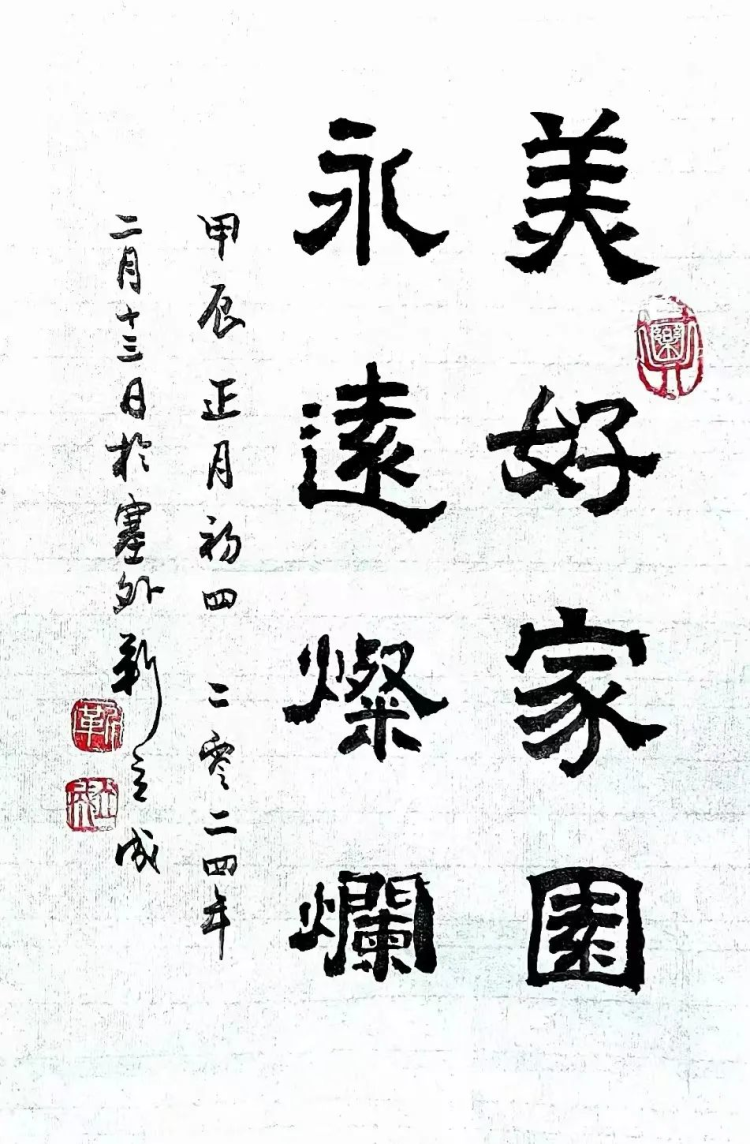 美好家園
永遠燦爛
甲辰正月初四 二零二四年
二月十三日於塞外靳立成
靳